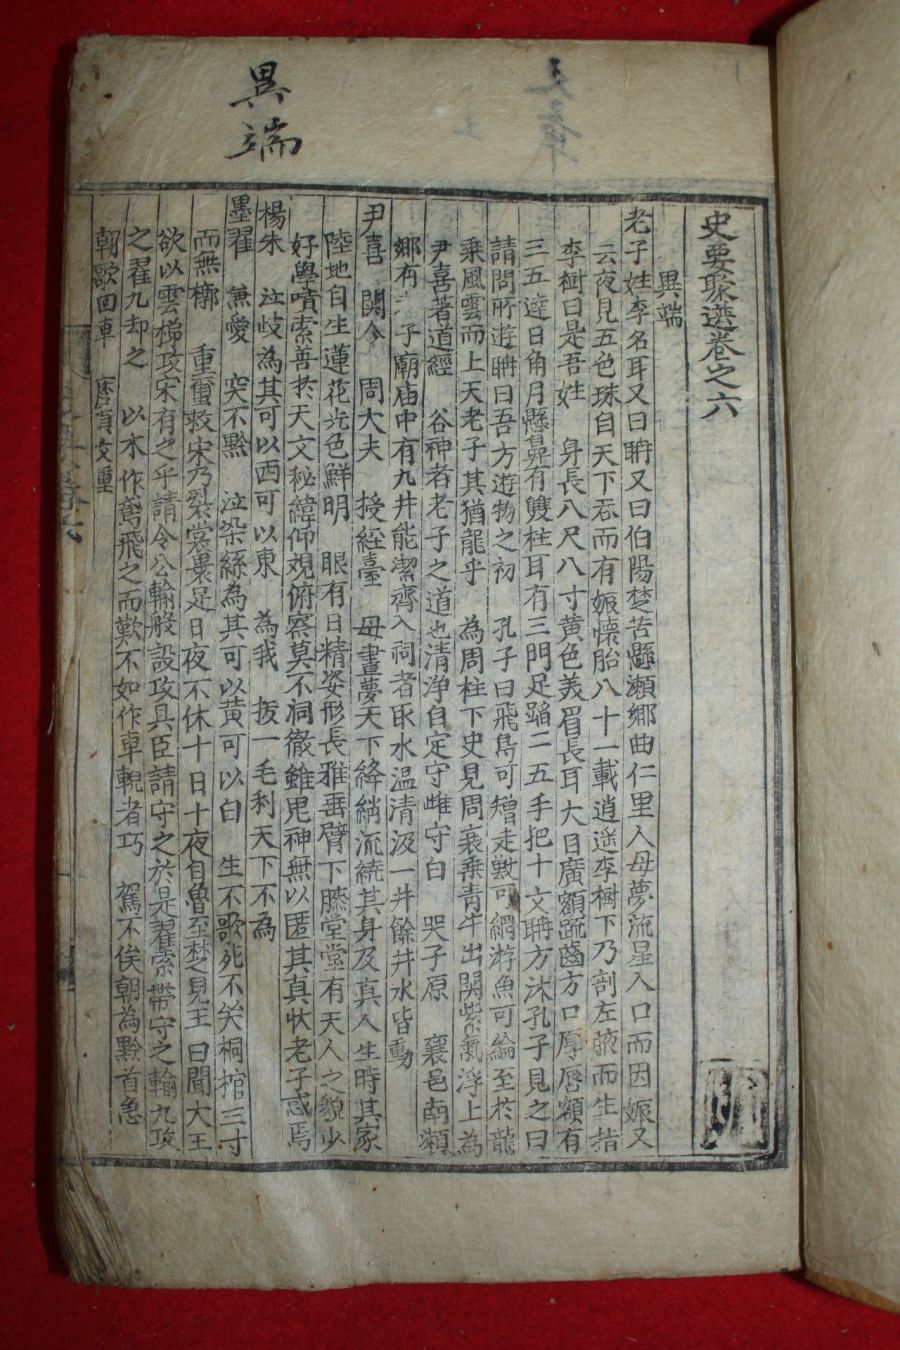 異端
史要聚選卷之六
異端
老子姓李名耳又曰聃又曰伯陽楚苦縣瀬鄉曲仁里人母夢流星入口而因娠又
云夜見五色珠自天下吞而有娠懷胎八十一載逍遥李樹下乃剖左腋而生指
李樹曰是吾姓 身長八尺八寸黄色美眉長耳大目廣額疏齒方口厚唇額有
三五逰日角月懸鼻有雙柱耳有三門足蹈二五手把十文聃方沐孔子見之曰
請問所遊聃曰吾方遊物之初 孔子曰飛鳥可矰走獸可網游魚可綸至於龍
乗風雲而上天老子其猶龍乎 為周柱下史見周衰乗青牛出関紫氣浮上為
尹喜著道經 谷神者老子之道也清浄自定守雌守白 哭子原 襄邑南瀬
鄉有老子廟庙中有九井能潔齊入祠者取水温清汲一井餘井水皆動
尹喜 関令 周大夫 授經臺 母晝夢天下絳綃流繞其身及真人生時其家
陸地自生蓮花光色鮮明 眼有日精姿形長雅垂臂下膝堂堂有天人之貌少
好學墳索善於天文秘緯仰覌俯察莫不洞徹雖鬼神無以匿其真状老子感焉
楊朱 泣歧為其可以西可以東 為我 拔一毛利天下不為
墨翟 兼愛 突不黔 泣染絲為其可以黄可以白 生不歌死不哭桐棺三寸
而無槨 重蠒救宋乃裂裳裹足日夜不休十日十夜自魯至楚見王曰聞大王
欲以雲梯攻宋有之乎請令公輸般設攻具臣請守之於是翟縈帶守之輸九攻
之翟九却之 以木作鳶飛之而歎不如作車輗者巧 駕不俟朝為黔首急
朝歌回車 摩頂支踵